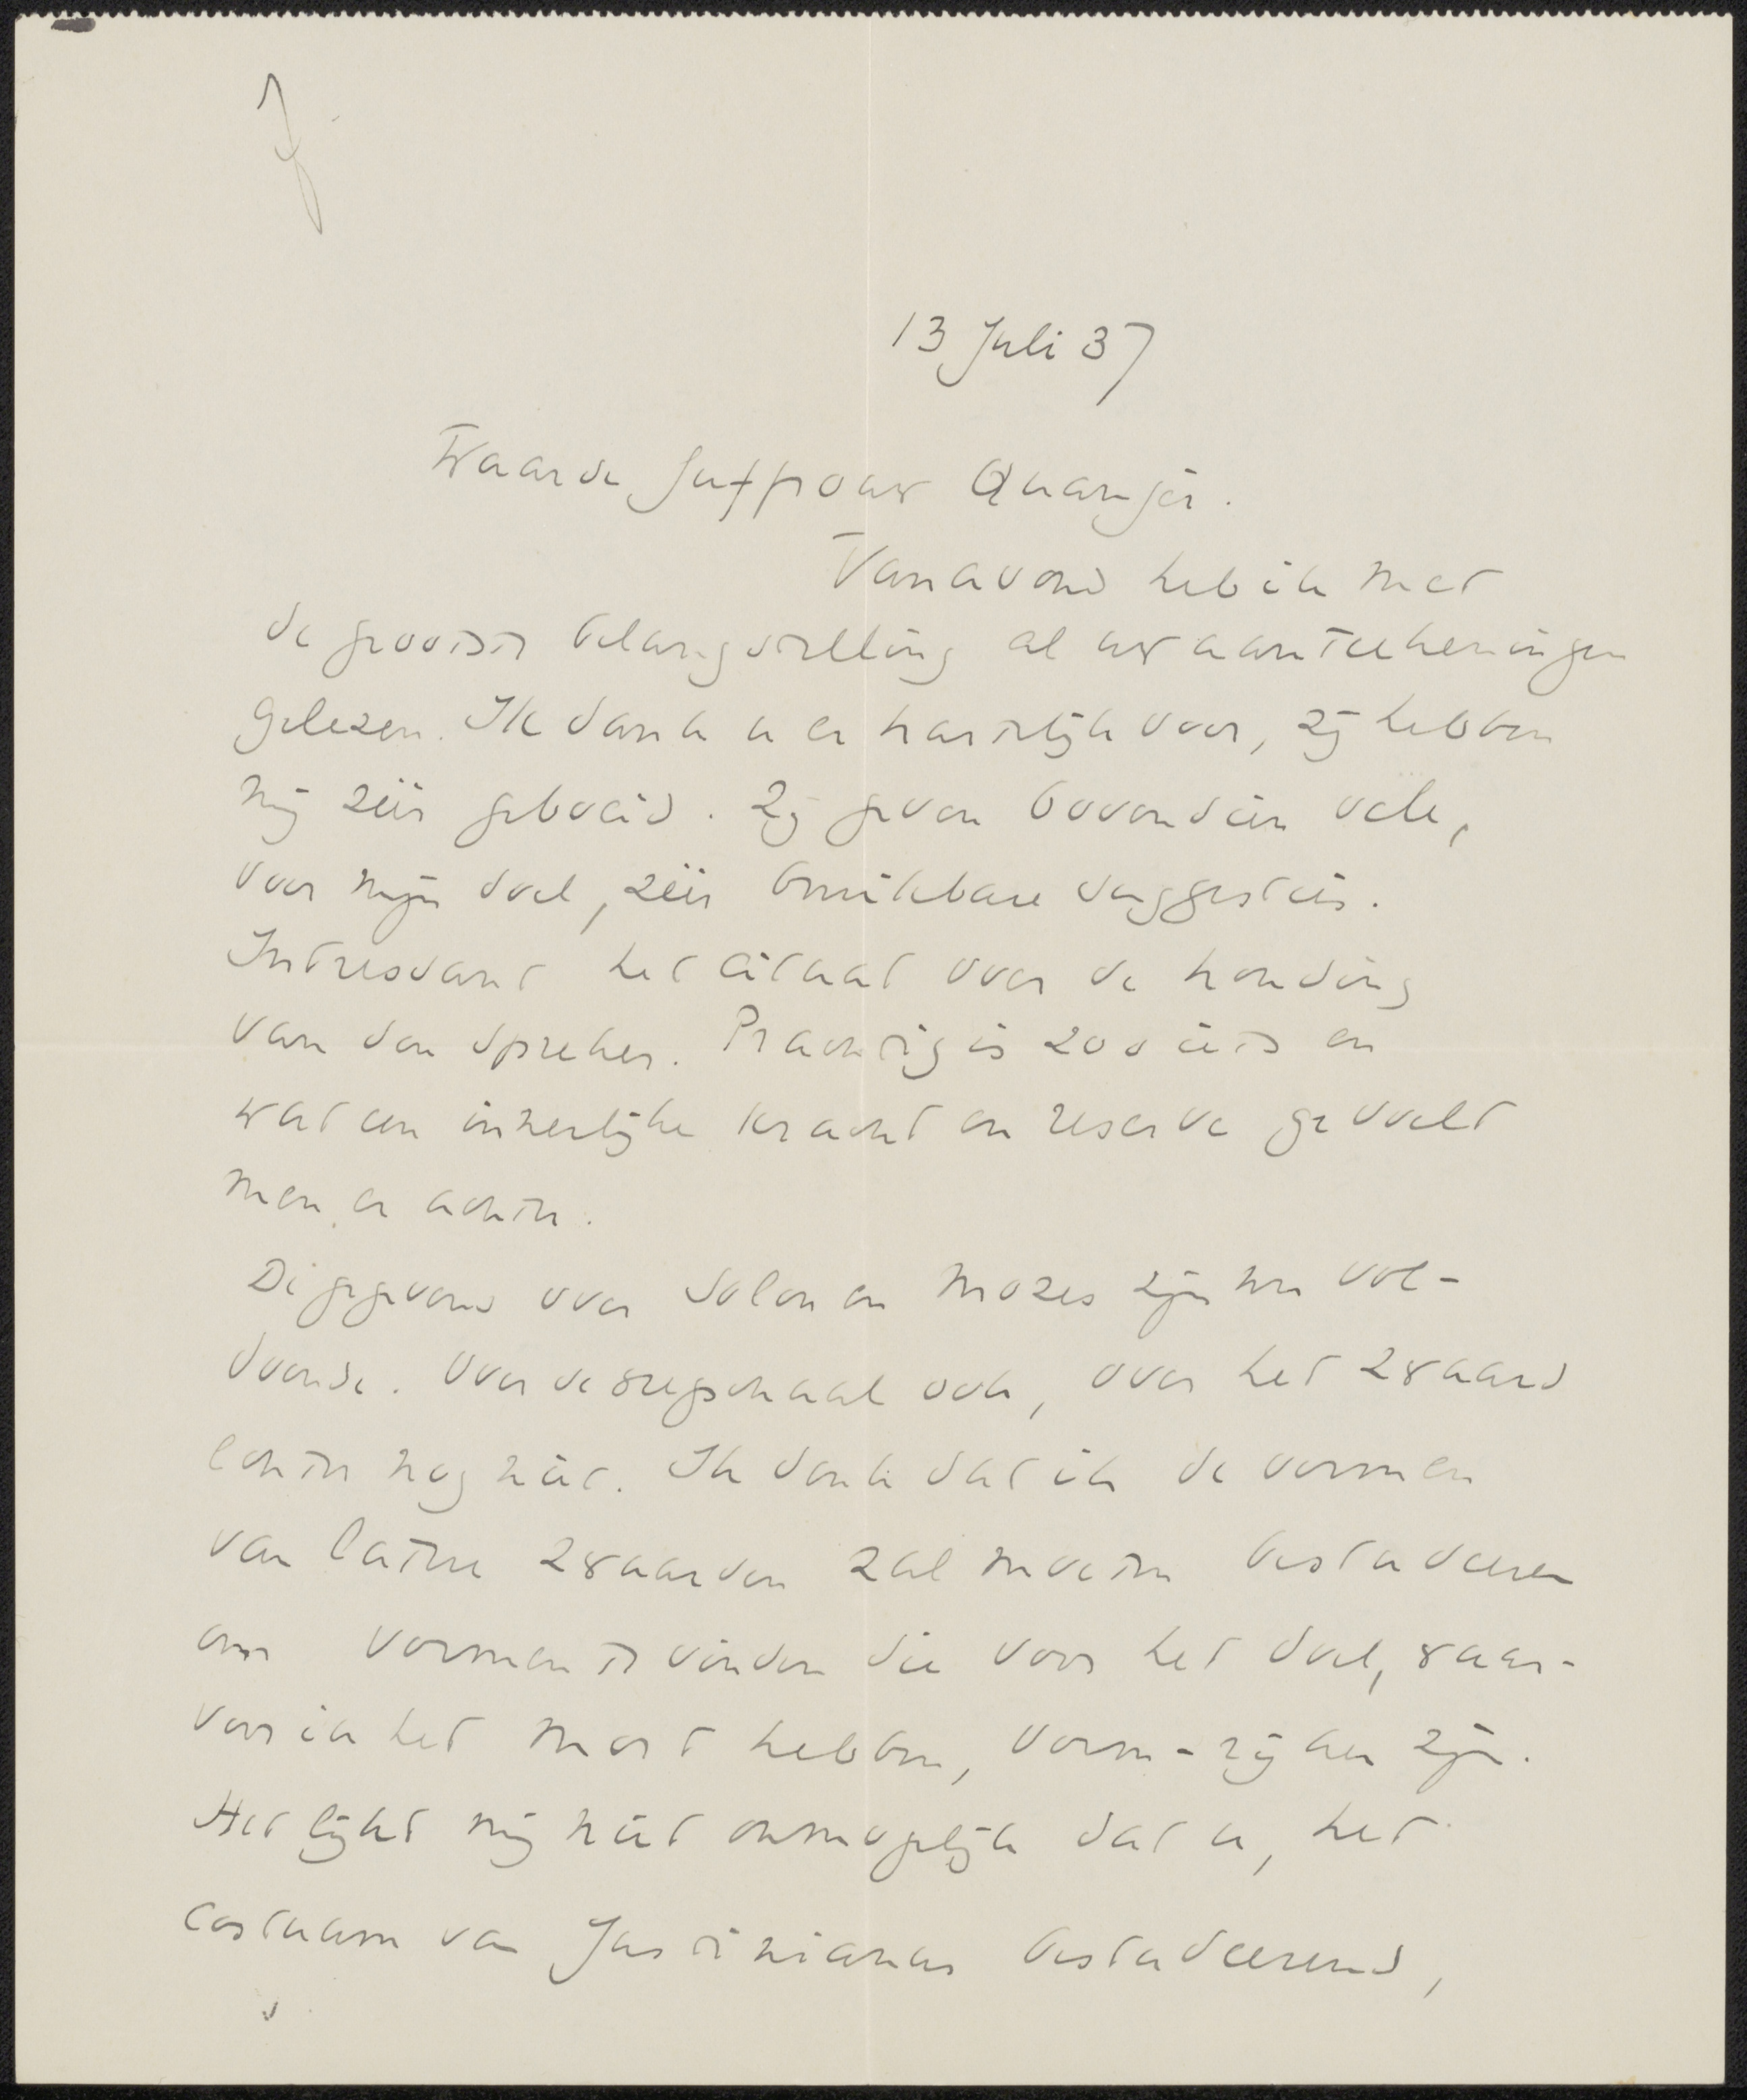 13 Juli 37
Waarde Juffrouw Quanjer.
Vanavond heb ik met
de grootste belangstelling al uw aanteekeningen
gelezen. Ik dank u er hartelijk voor, zij hebben
mij zéér geboeid. Zij geven bovendien vele,
voor mijn doel, zéér bruikbare suggesties.
Intressant het citaat over de houding
van den spreker. Prachtig is zoo iets en
wat een innerlijke kracht en reserve gevoelt
men er achter.
De gegevens over Solon en Mozes zijn nu vol-
doende. Over de weegschaal ook, over het zwaard
echter nog niet. Ik denk dat ik de vormen
van latere zwaarden zal moeten bestudeeren
om vormen te vinden die voor het doel, waar-
voor ik het moet hebben, vorm-rijker zijn.
Het lijkt mij niet onmogelijk dat u, het
costuum van Justinianus bestudeerend,